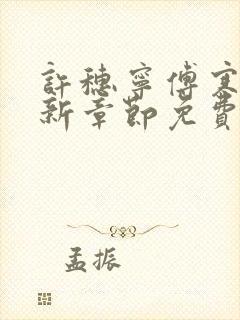 許穗寧傅寒
新章節免費
孟振